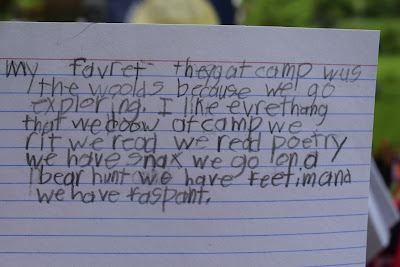 My favret theggat camp wus
the woolds becouse we go
exploring. I like evrethang
that we doow at camp we
rit we read we read poetry
we have snax we go on a
bear hunt we have feetimand
we have raspant.